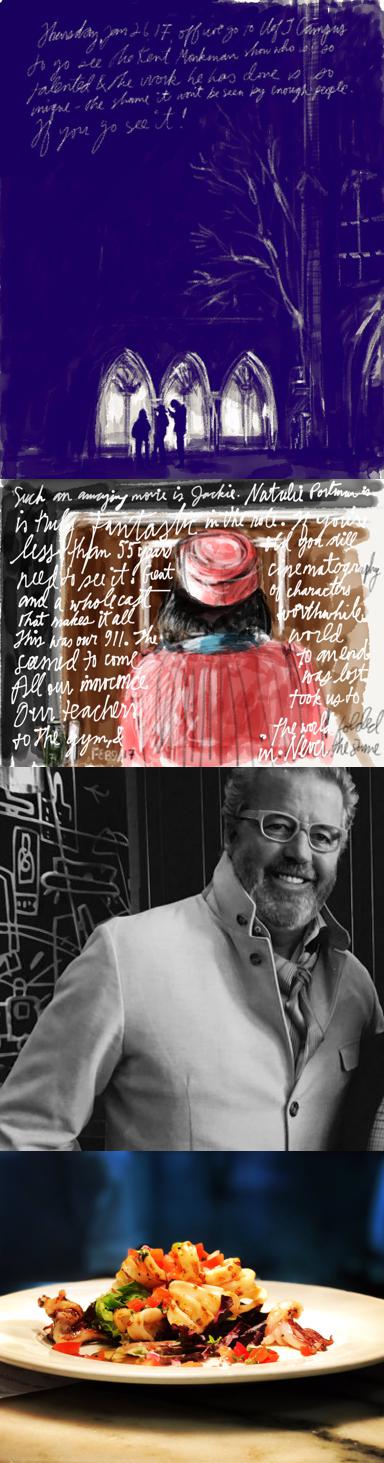 Thursday Jan 26 17. off we go to UofT Campus
to go see the Kent Monkman show who is so
talented & the work he has done is so
unique - the shame it won't be seen by enough people.
If you go see it!
Such an amazing movie is Jackie. Natalie Portman
is truly fantastic in the role. If you're
less than 55 years old you still
need to see it. Great cinematography
and a whole cast of characters
that makes it all worthwhile
This was our 911. The world
seemed to come to an end
All our innocence was lost
Our teachers took us to
to the gym & the world folded
in. Never the same
FEB 5/17